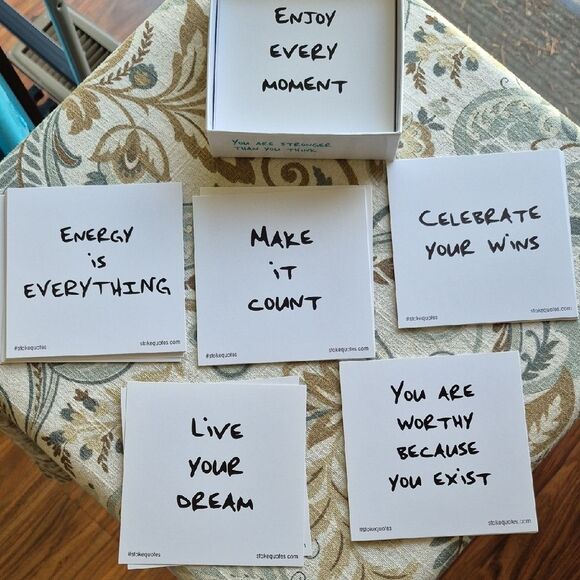 ENJOY
EVERY
MOMENT
YOU ARE STRONGER
THAN YOU THINK
ENERGY
iS
EVERYTHING
#stokequotes stokequotes.com
MAKE
iT
COUNT
#stokequotes stokequotes.com
CELEBRATE
YOUR WiNS
#stokequotes stokequotes.com
LiVE
YOUR
DREAM
#stokequotes stokequotes.com
YOU ARE
WORTHY
BECAUSE
YOU EXiST
#stokequotes stokequotes.com